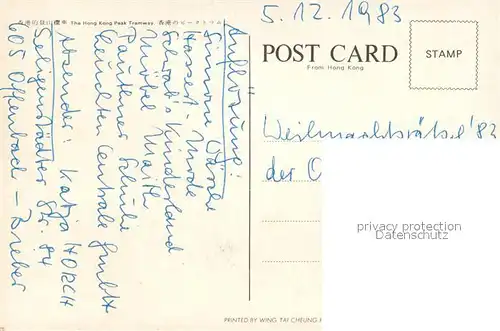 香港的登山纜車 The Hong Kong Peak Tramway. 香港のピークトラム
5.12.1983
POST CARD
From Hong Kong
STAMP
Auflösung:
Simone Wäsche
Hassert - Mode
Schwab's Kinderland
Möbel Maith
Panthner Schuhe
Leuchten Centrale
Absender: Katja HORCH
Seligenstädter Str. 84
605 Offenbach - Bieber
Weihnachtsrätsel '83
der O
privacy protection
Datenschutz
PRINTED BY WING TAI CHEUNG